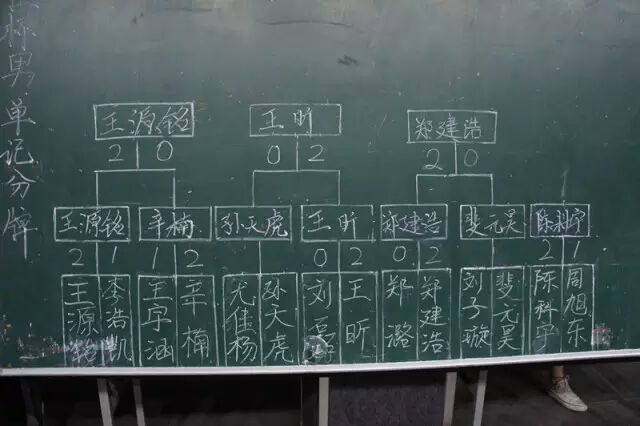 男单记分牌
王源铭 王昕 郑建浩
2 0 0 2 2 0
王源铭 辛楠 孙天虎 王昕 郑建浩 裴元昊 陈科宇
2 1 1 2 0 2 0 2 2 1
王源铭 李浩凯 王宇涵 辛楠 尤佳杨 孙天虎 刘 王昕 郑潞 郑建浩 刘子璇 裴元昊 陈科宇 周旭东